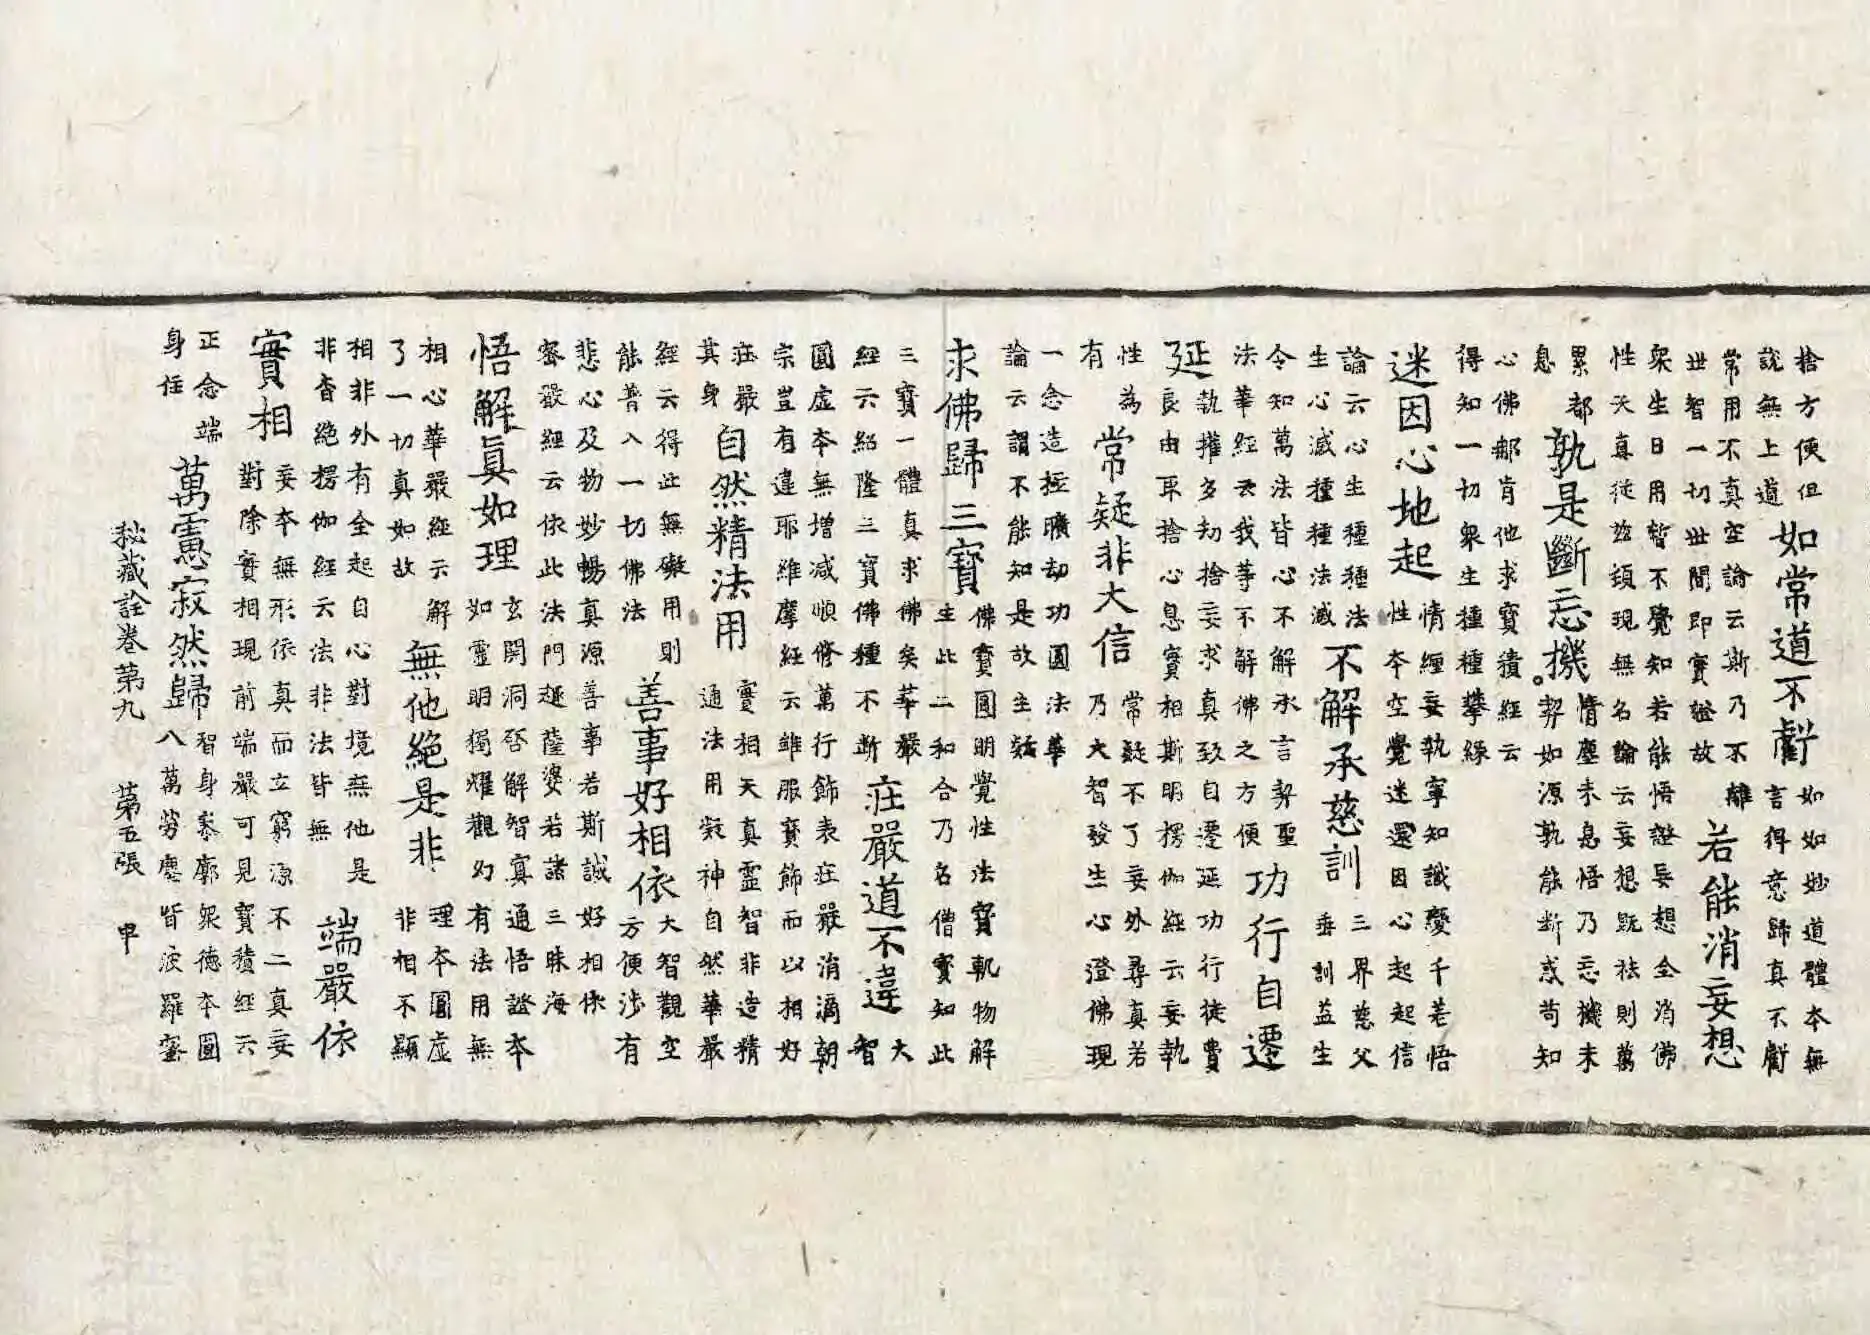 捨方便但
說無上道
如常道不虧
如如妙道體本無
言得意歸真不虧
常用不真空論云斯乃不離
世智一切世間即實證故
若能消妄想
衆生日用暫不覺知若能悟證妄想全消佛
性天真從茲頓現無名論云妄想既祛則萬
累都
息
孰是斷忘機。
情塵未息悟乃忘機未
契如源孰能斷惑苟知
心佛那肯他求寶積經云
得知一切衆生種種攀緣
迷因心地起
情纏妄執寧知識變千差悟
性本空覺迷還因心起起信
論云心生種種法
生心滅種種法滅
不解承慈訓
三界慈父
垂訓益生
令知萬法皆心不解承言契聖
法華經云我等不解佛之方便
功行自遷
延
執摧多劫捨妄求真致自遷延功行徒費
良由耳捨心息實相斯明楞伽經云妄執
性為
有
常疑非大信
常疑不了妄外尋真若
乃大智發生心澄佛現
一念造極曠劫功圓法華
論云謂不能知是故生疑
求佛歸三寶
佛寶圓明覺性法寶軌物解
生此二和合乃名僧寶知此
三寶一體真求佛矣華嚴
經云紹隆三寶佛種不斷
莊嚴道不違
大
智
圓虛本無增減順修萬行飾表莊嚴消滴朝
宗豈有違耶維摩經云雖服寶飾而以相好
莊嚴
其身
自然精法用
實相天真靈智非造精
通法用凝神自然華嚴
經云得此無礙用則
能普入一切佛法
善事好相依
大智觀空
方便涉有
悲心及物妙暢真源善事若斯誠好相依
密嚴經云依此法門趣薩婆若諸三昧海
悟解真如理
玄關洞啓解智冥通悟證本
如靈明獨耀觀幻有法用無
相心華嚴經云解
了一切真如故
無他絕是非
理本圓虛
非相不顯
相非非外有全起自心對境無他是
非杳絕楞伽經云法非法皆無
端嚴依
實相
妄本無形依真而立窮源不二真妄
對除實相現前端嚴可見寶積經云
正念端
身住
萬慮寂然歸
智身寥廓衆德本圓
八萬勞塵皆波羅蜜
秘藏詮卷第九 第五張 申